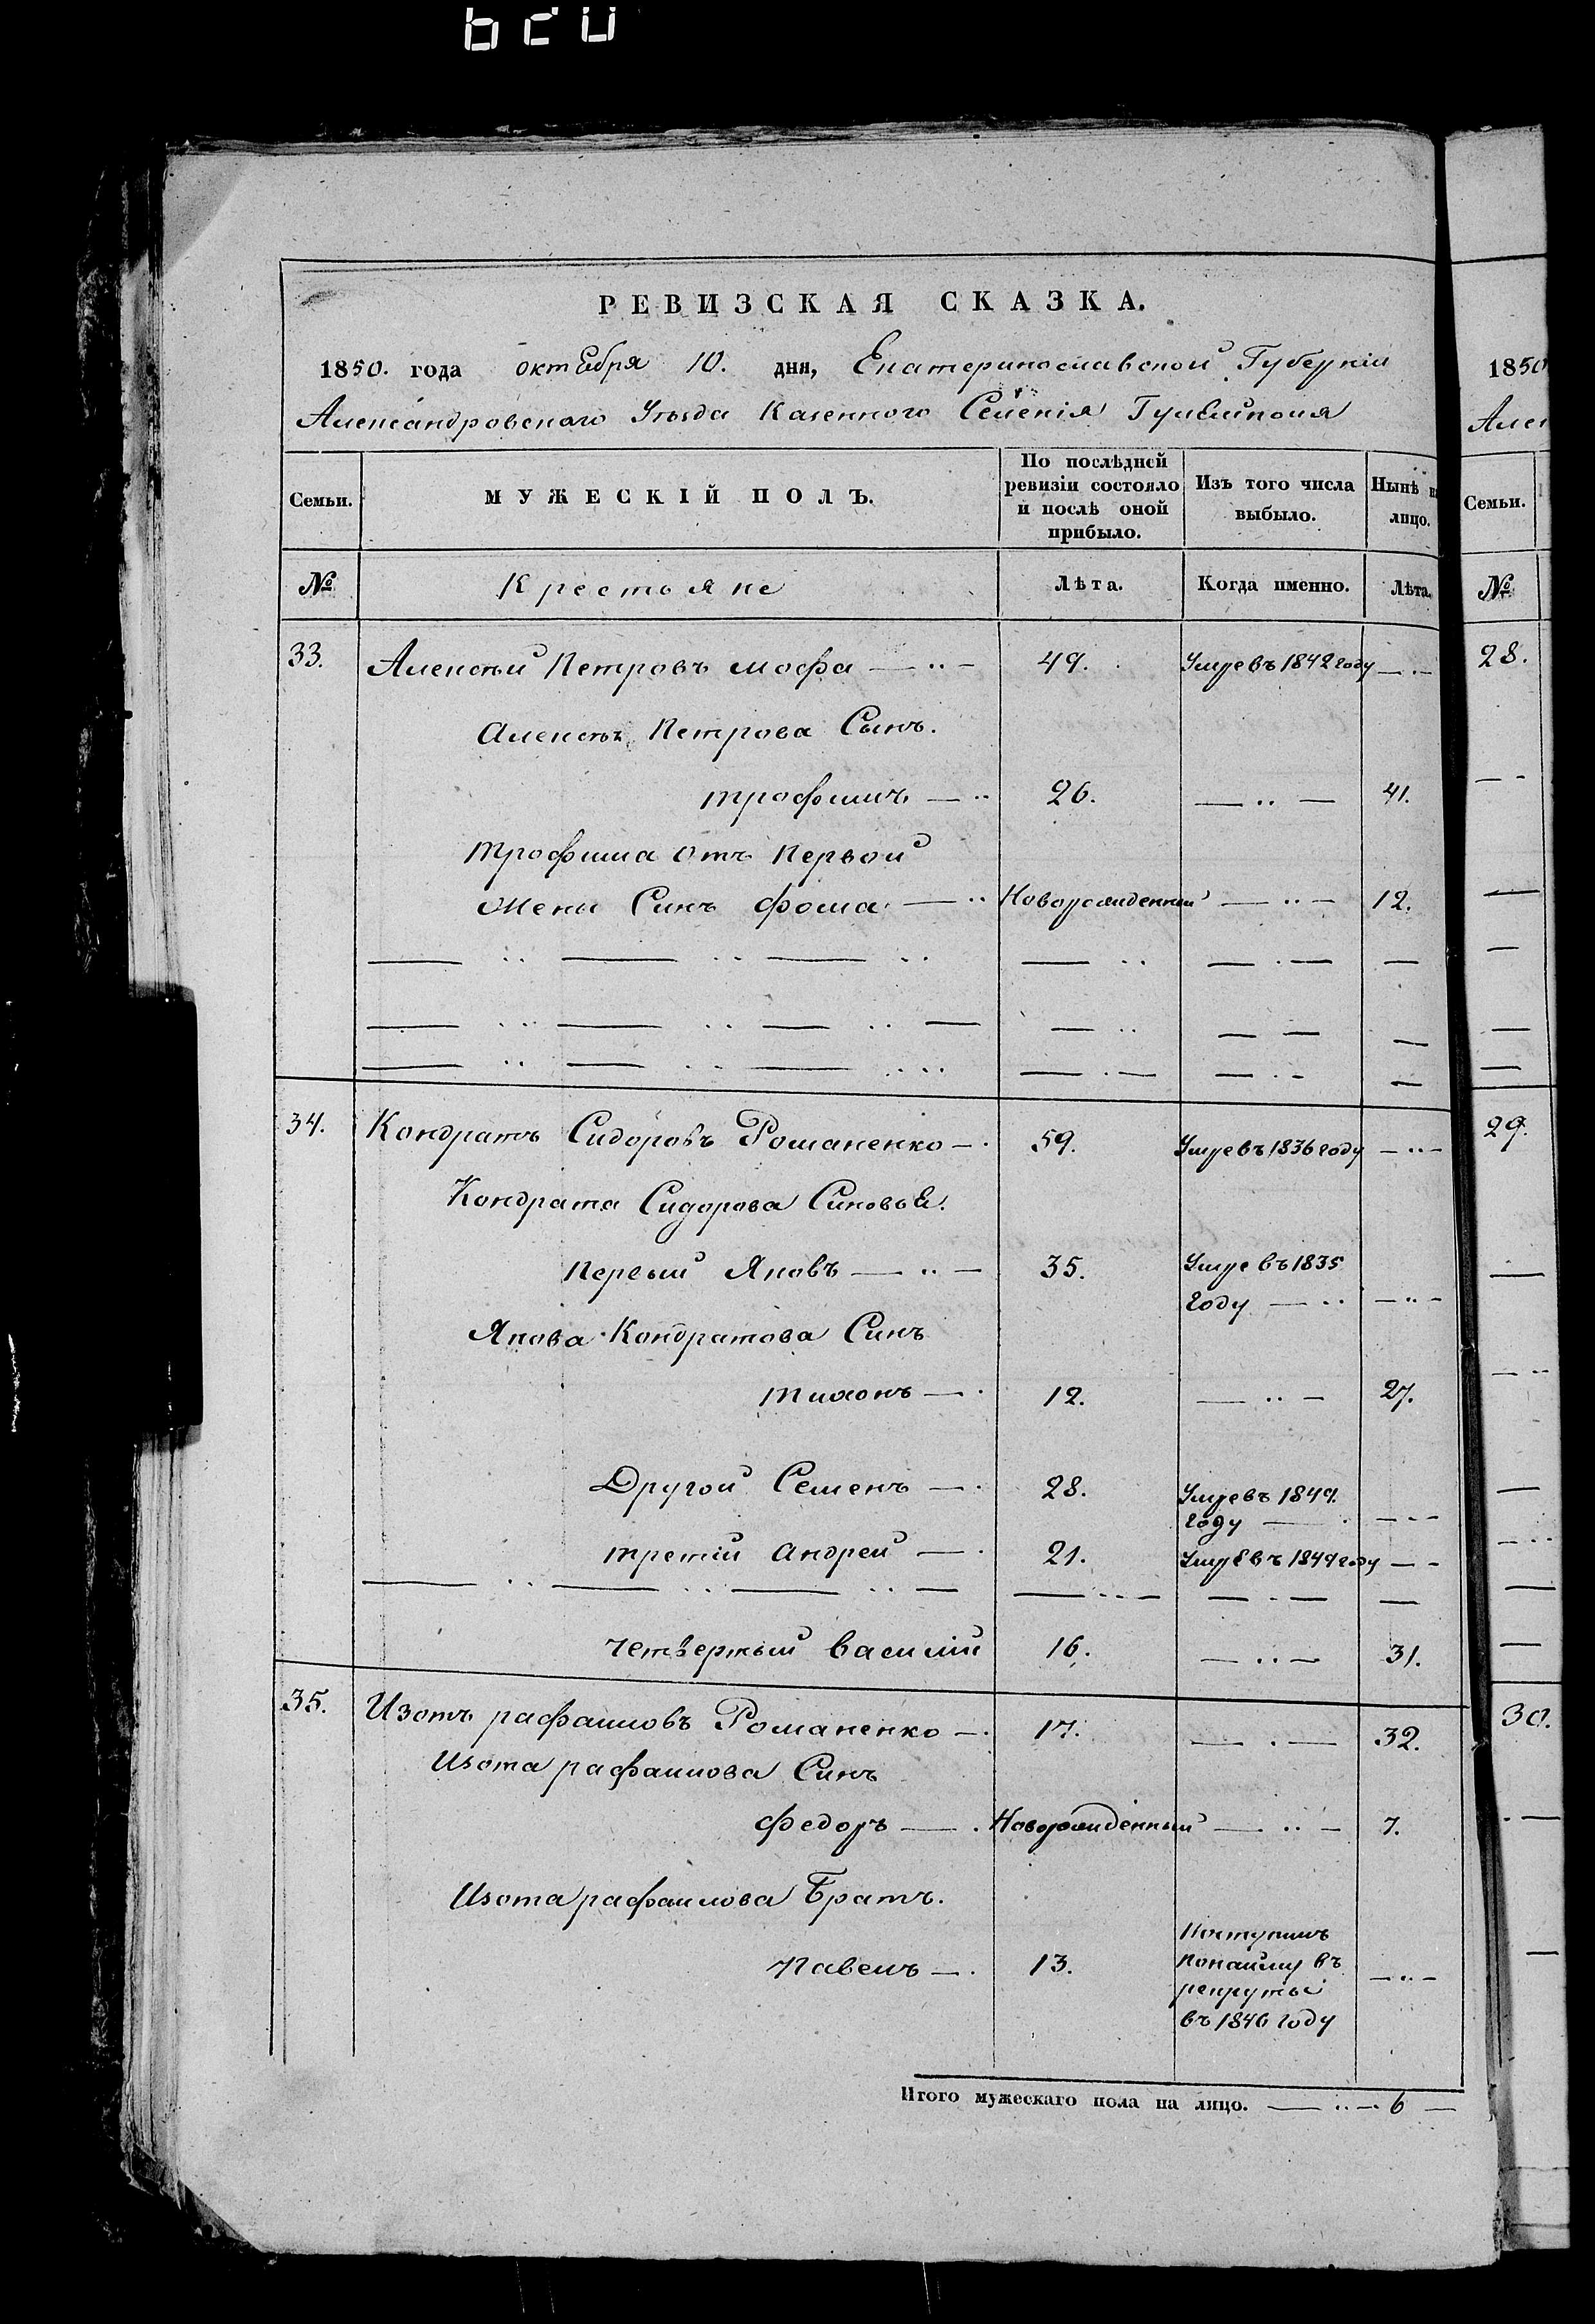 РЕВИЗСКАЯ СКАЗКА.
1850. года октября 10. дня, Екатеринославской Губерніи
Александровскаго Уѣзда Казенного Селенія Гуляйполя
Семьи.
МУЖЕСКІЙ ПОЛЪ.
По послѣдней ревизіи состояло и послѣ оной прибыло.
Изъ того числа выбыло.
Нынѣ на лицо.
№
Крестьяне
Лѣта.
Когда именно.
Лѣта.
33. Алексѣй Петровъ мофа — 49. Умре въ 1842 году —
Алексѣя Петрова Сынъ.
трофимъ — 26. — 41.
трофима отъ первой
жены Синъ фома — Новорожденный — 12.
34. Кондратъ Сидоровъ Романенко — 59. Умре въ 1836 году —
Кондрата Сидорова Синовье.
первый Яковъ — 35. Умре въ 1835
году —
Якова Кондратова Синъ
тихонъ — 12. — 27.
Другой Семенъ — 28. Умре въ 1849.
году —
третій андрей — 21. Умре въ 1849 году —
четвертый василій 16. — 31.
35. Изотъ рафаиловъ Романенко — 17. — 32.
Изота рафаилова Синъ
федоръ — Новорожденный — 7.
Изота рафаилова Братъ.
павелъ — 13. Поступилъ
понайму въ
рекруты
въ 1846 году
Итого мужескаго пола на лицо. — 6 —
1850
Семьи.
№
28.
29.
30.